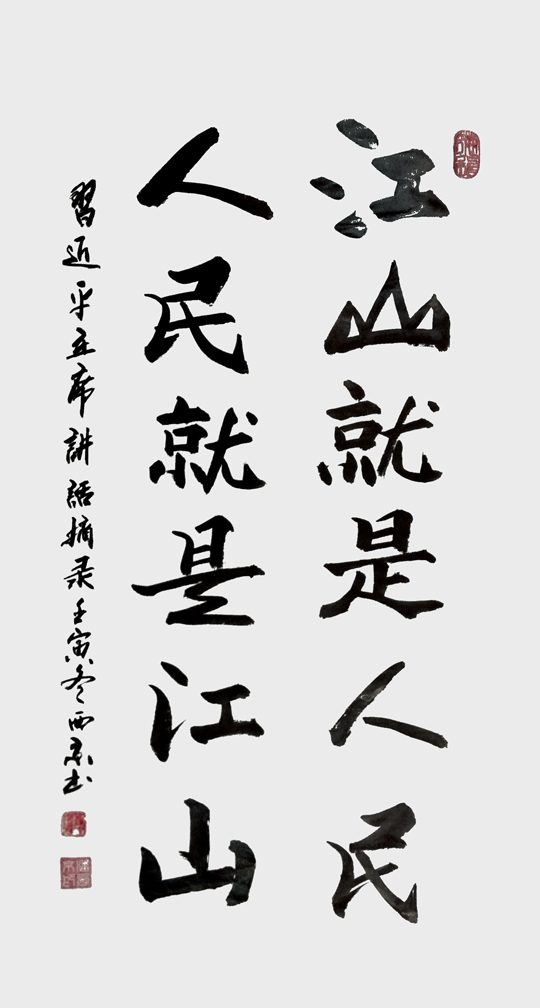 江山就是人民
人民就是江山
習近平主席講話摘录壬寅冬西京书